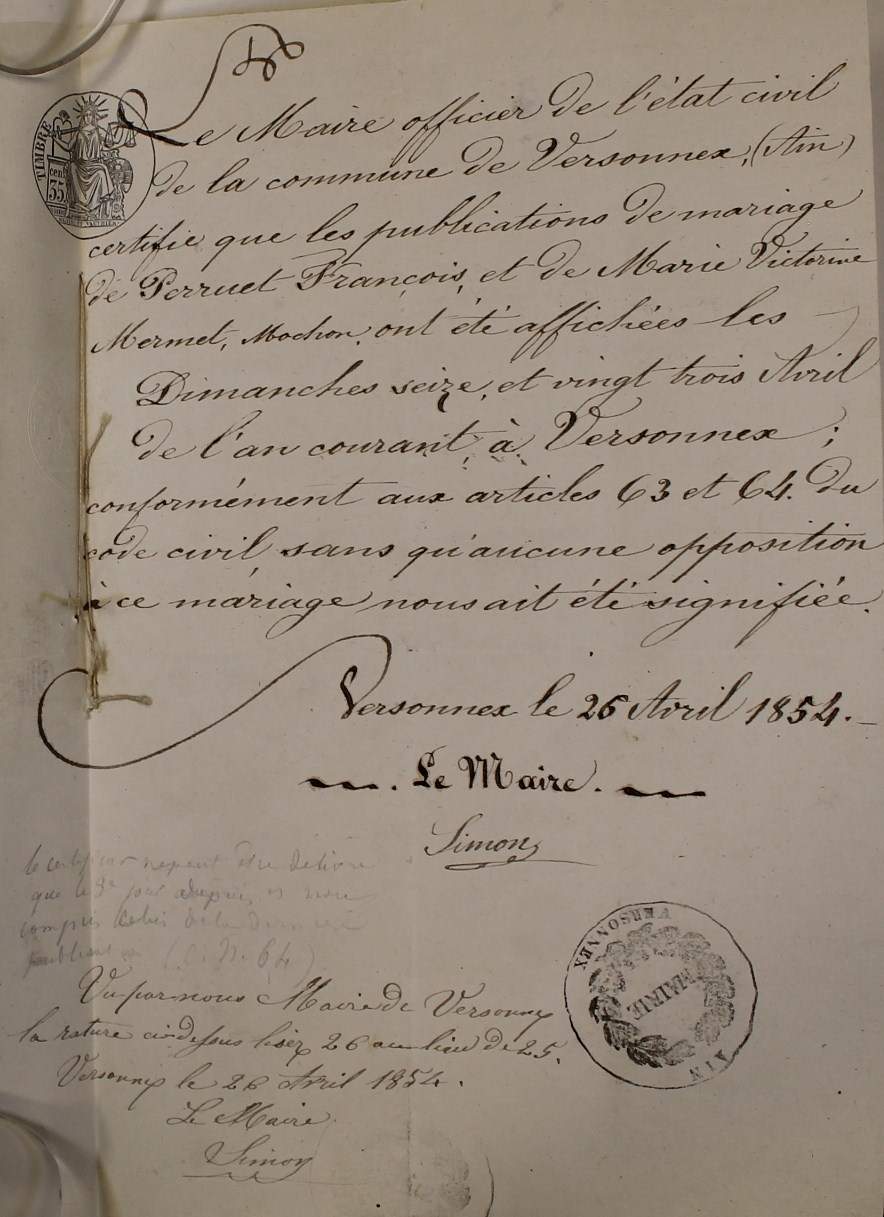 TIMBRE
cent
35
Le Maire officier de l'état civil
de la commune de Versonnex, (Ain)
certifie que les publications de mariage
de Perruet François, et de Marie Victorine
Mermet, Mochon, ont été affichées les
Dimanches seize, et vingt trois Avril
de l'an courant, à Versonnex ;
conformément aux articles 63 et 64. du
code civil, sans qu'aucune opposition
à ce mariage nous ait été signifiée.
Versonnex le 26 Avril 1854.
Le Maire.
Simon
le certificat ne peut être délivré
que le 3e jour depuis et non
compris celui de la dernière
publication (C. N. 64)
VERSONNEX
MAIRIE
AIN
Vu par nous Maire de Versonnex
la rature ci dessus lisez 26 au lieu de 25.
Versonnex le 26 Avril 1854.
Le Maire
Simon